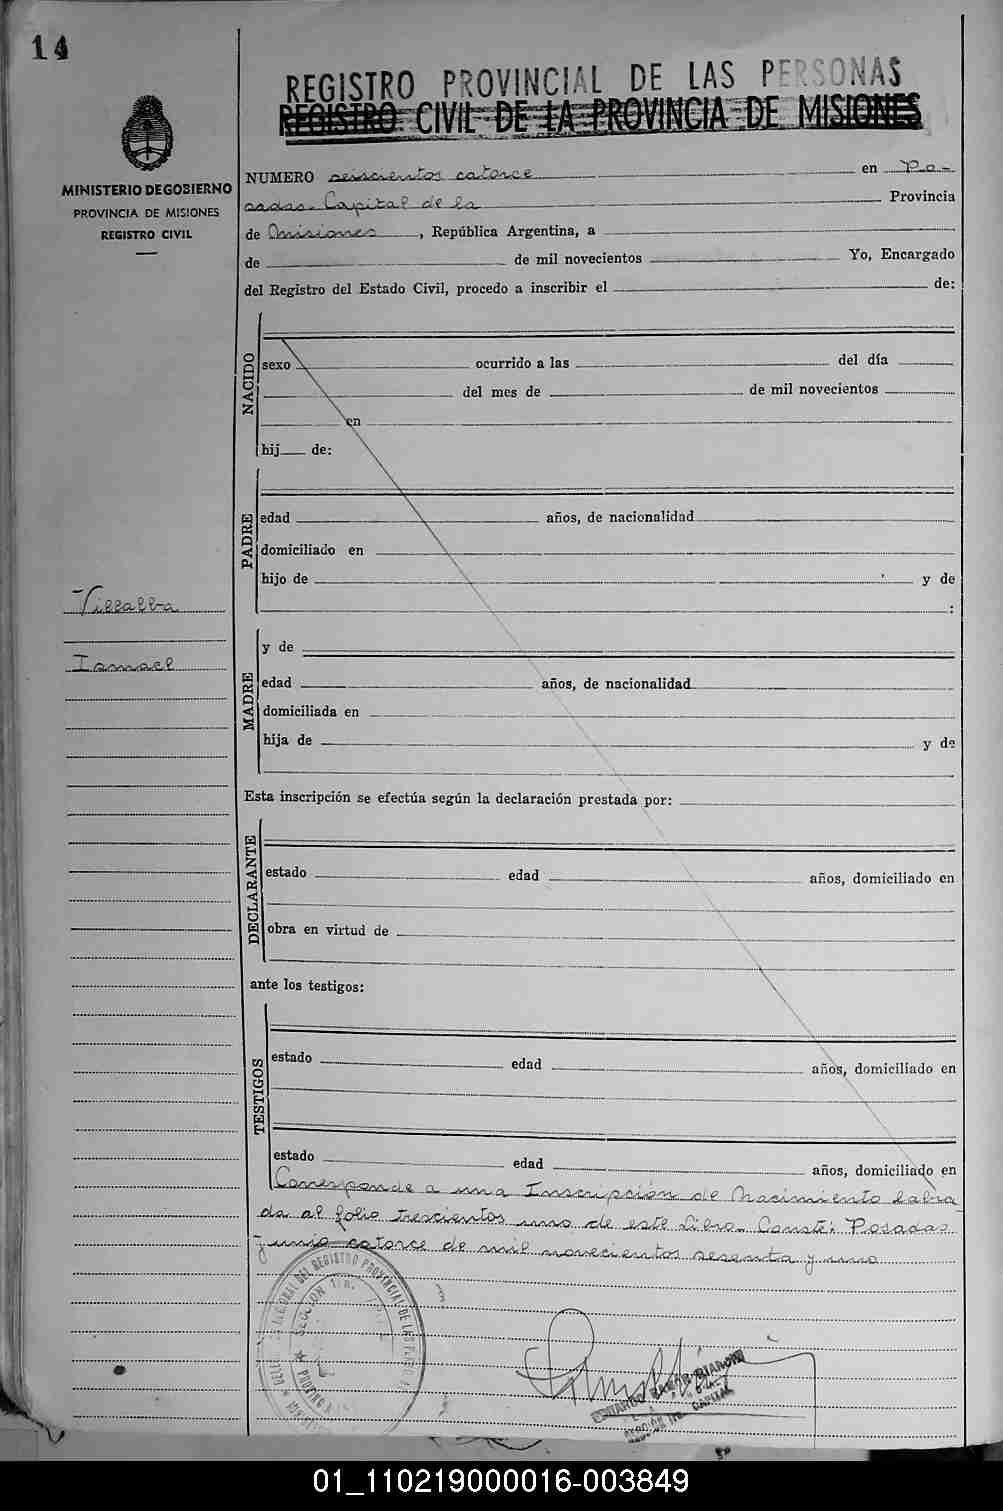 14
REGISTRO PROVINCIAL DE LAS PERSONAS
REGISTRO CIVIL DE LA PROVINCIA DE MISIONES
MINISTERIO DE GOBIERNO
PROVINCIA DE MISIONES
REGISTRO CIVIL
NUMERO seiscientos catorce en Po-
sadas Capital de la Provincia
de Misiones, República Argentina, a
de de mil novecientos Yo, Encargado
del Registro del Estado Civil, procedo a inscribir el de:
NACIDO
sexo ocurrido a las del día
del mes de de mil novecientos
en
hij de:
PADRE
edad años, de nacionalidad
domiciliado en
hijo de y de
:
Villalba
Ismael
MADRE
y de
edad años, de nacionalidad
domiciliada en
hija de y de
Esta inscripción se efectúa según la declaración prestada por:
DECLARANTE
estado edad años, domiciliado en
obra en virtud de
ante los testigos:
TESTIGOS
estado edad años, domiciliado en
estado edad años, domiciliado en
Corresponde a una Inscripción de Nacimiento labra
da al folio trescientos uno de este Libro. Conste: Posadas
Junio catorce de mil novecientos sesenta y uno
DEL REGISTRO PROVINCIAL DE LAS
SECCION 1ra.
BIANCHI
CAPITAL
01_110219000016-003849